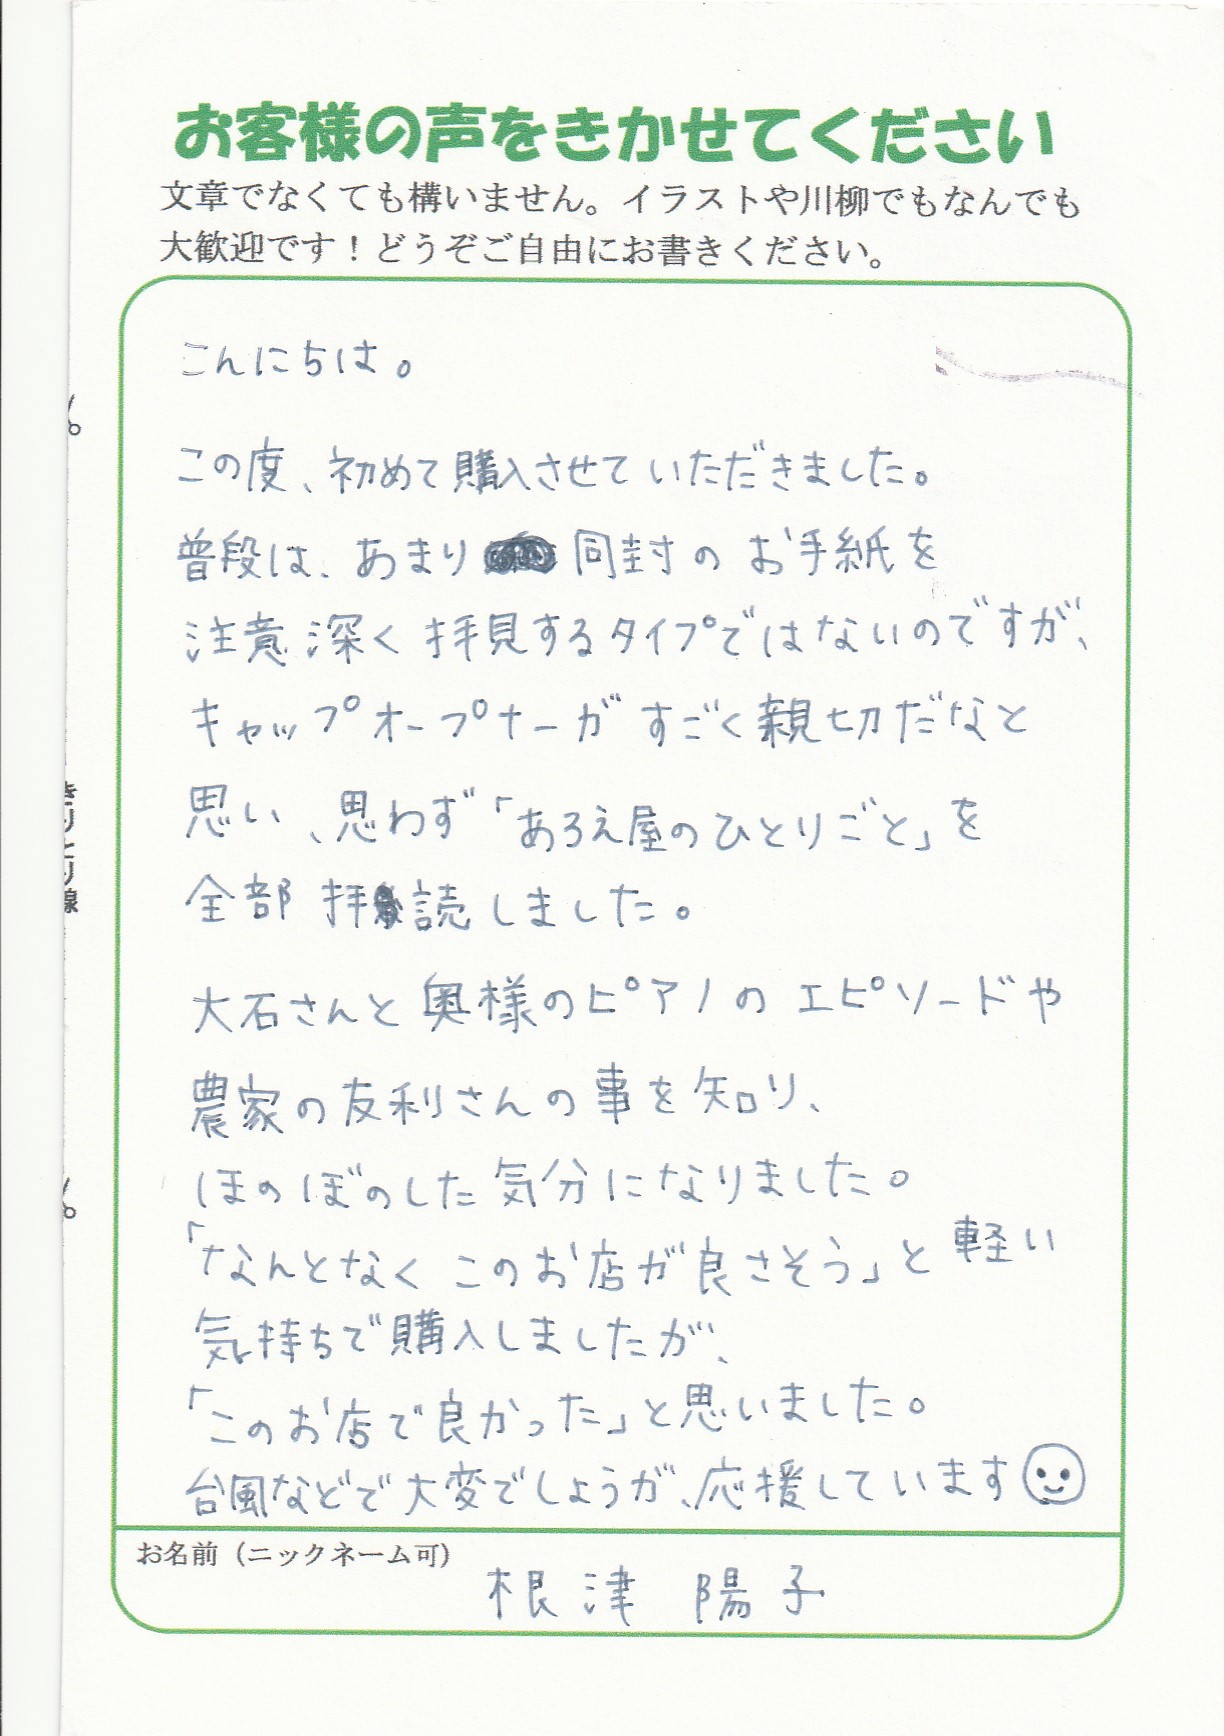 お客様の声をきかせてください
文章でなくても構いません。イラストや川柳でもなんでも
大歓迎です！どうぞご自由にお書きください。
こんにちは。
この度、初めて購入させていただきました。
普段は、あまり同封のお手紙を
注意深く拝見するタイプではないのですが、
キャップオープナーがすごく親切だなと
思い、思わず「あろえ屋のひとりごと」を
全部拝読しました。
大石さんと奥様のピアノのエピソードや
農家の友利さんの事を知り、
ほのぼのした気分になりました。
「なんとなくこのお店が良さそう」と軽い
気持ちで購入しましたが、
「このお店で良かった」と思いました。
台風などで大変でしょうが、応援しています
お名前（ニックネーム可）
根津 陽子
きりとり線